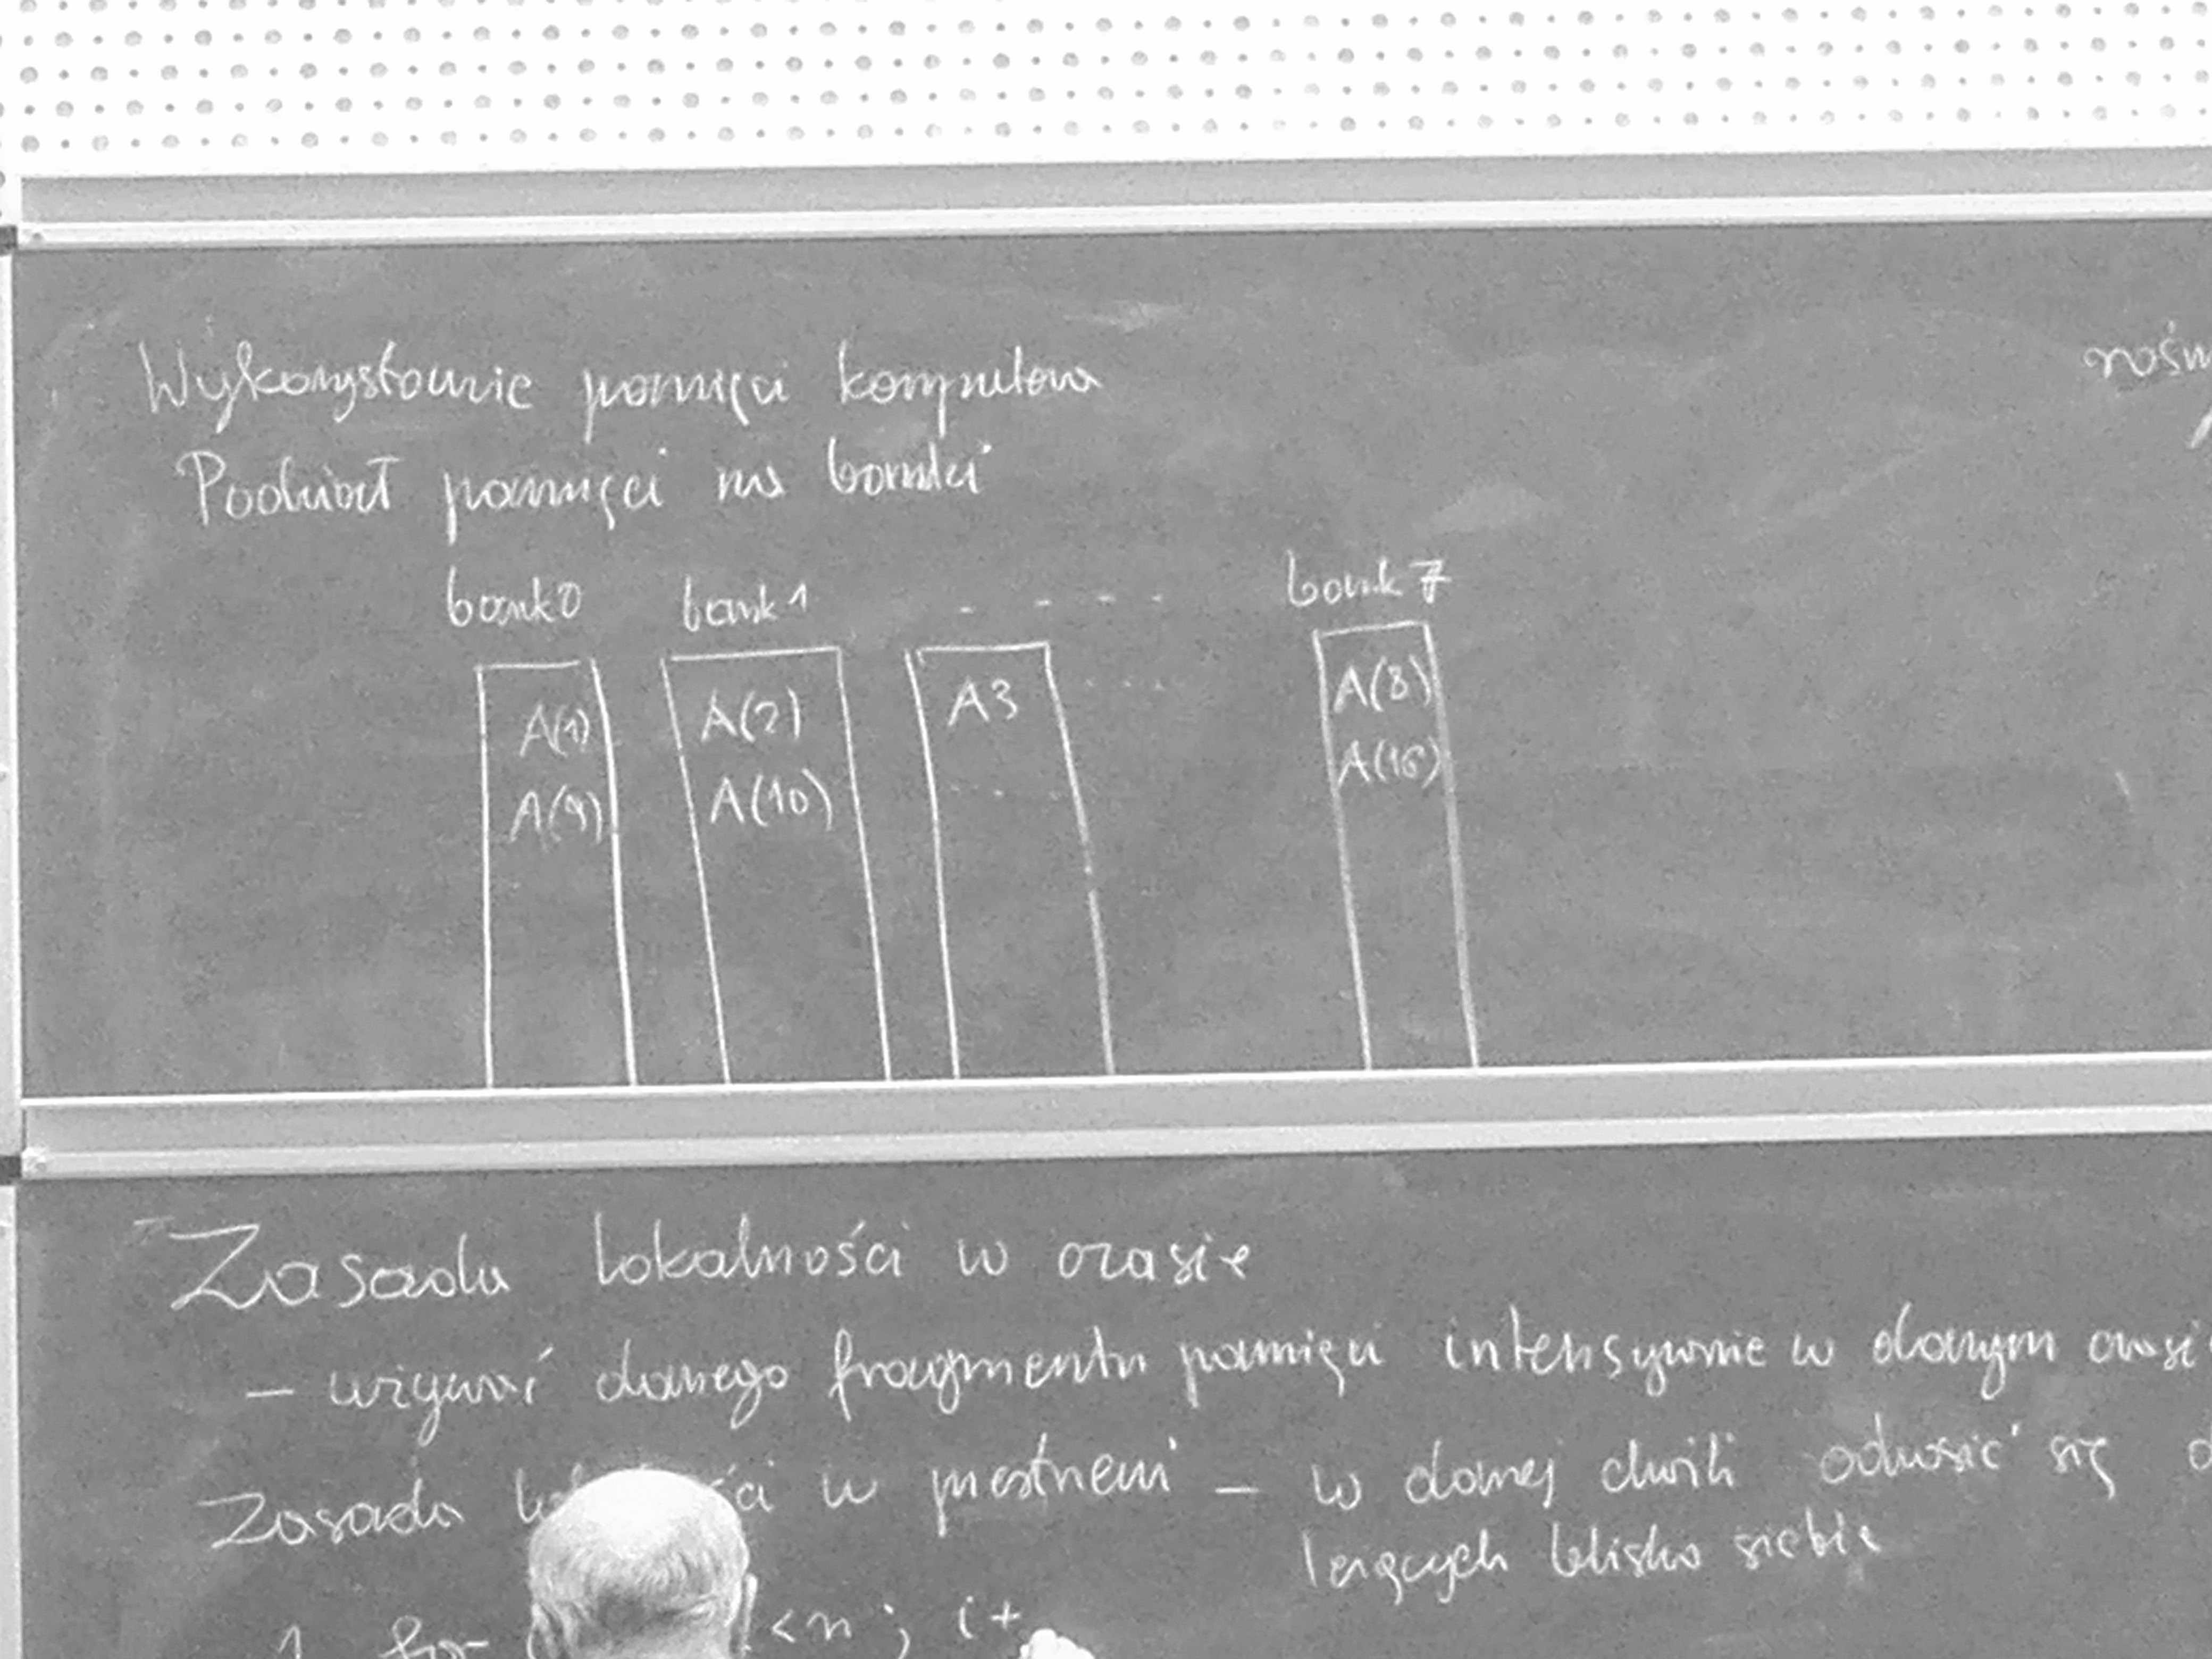 Wykorzystanie pamięci komputera
Podział pamięci na banki
bank 0 bank 1 - - - - bank 7
A(1) A(2) A3 .... A(8)
A(9) A(10) ... A(16)
Zasada lokalności w czasie
– używać danego fragmentu pamięci intensywnie w danym
Zasada w przestrzeni – w danej chwili odnosić się
leżących blisko siebie
1. for <n ; i+